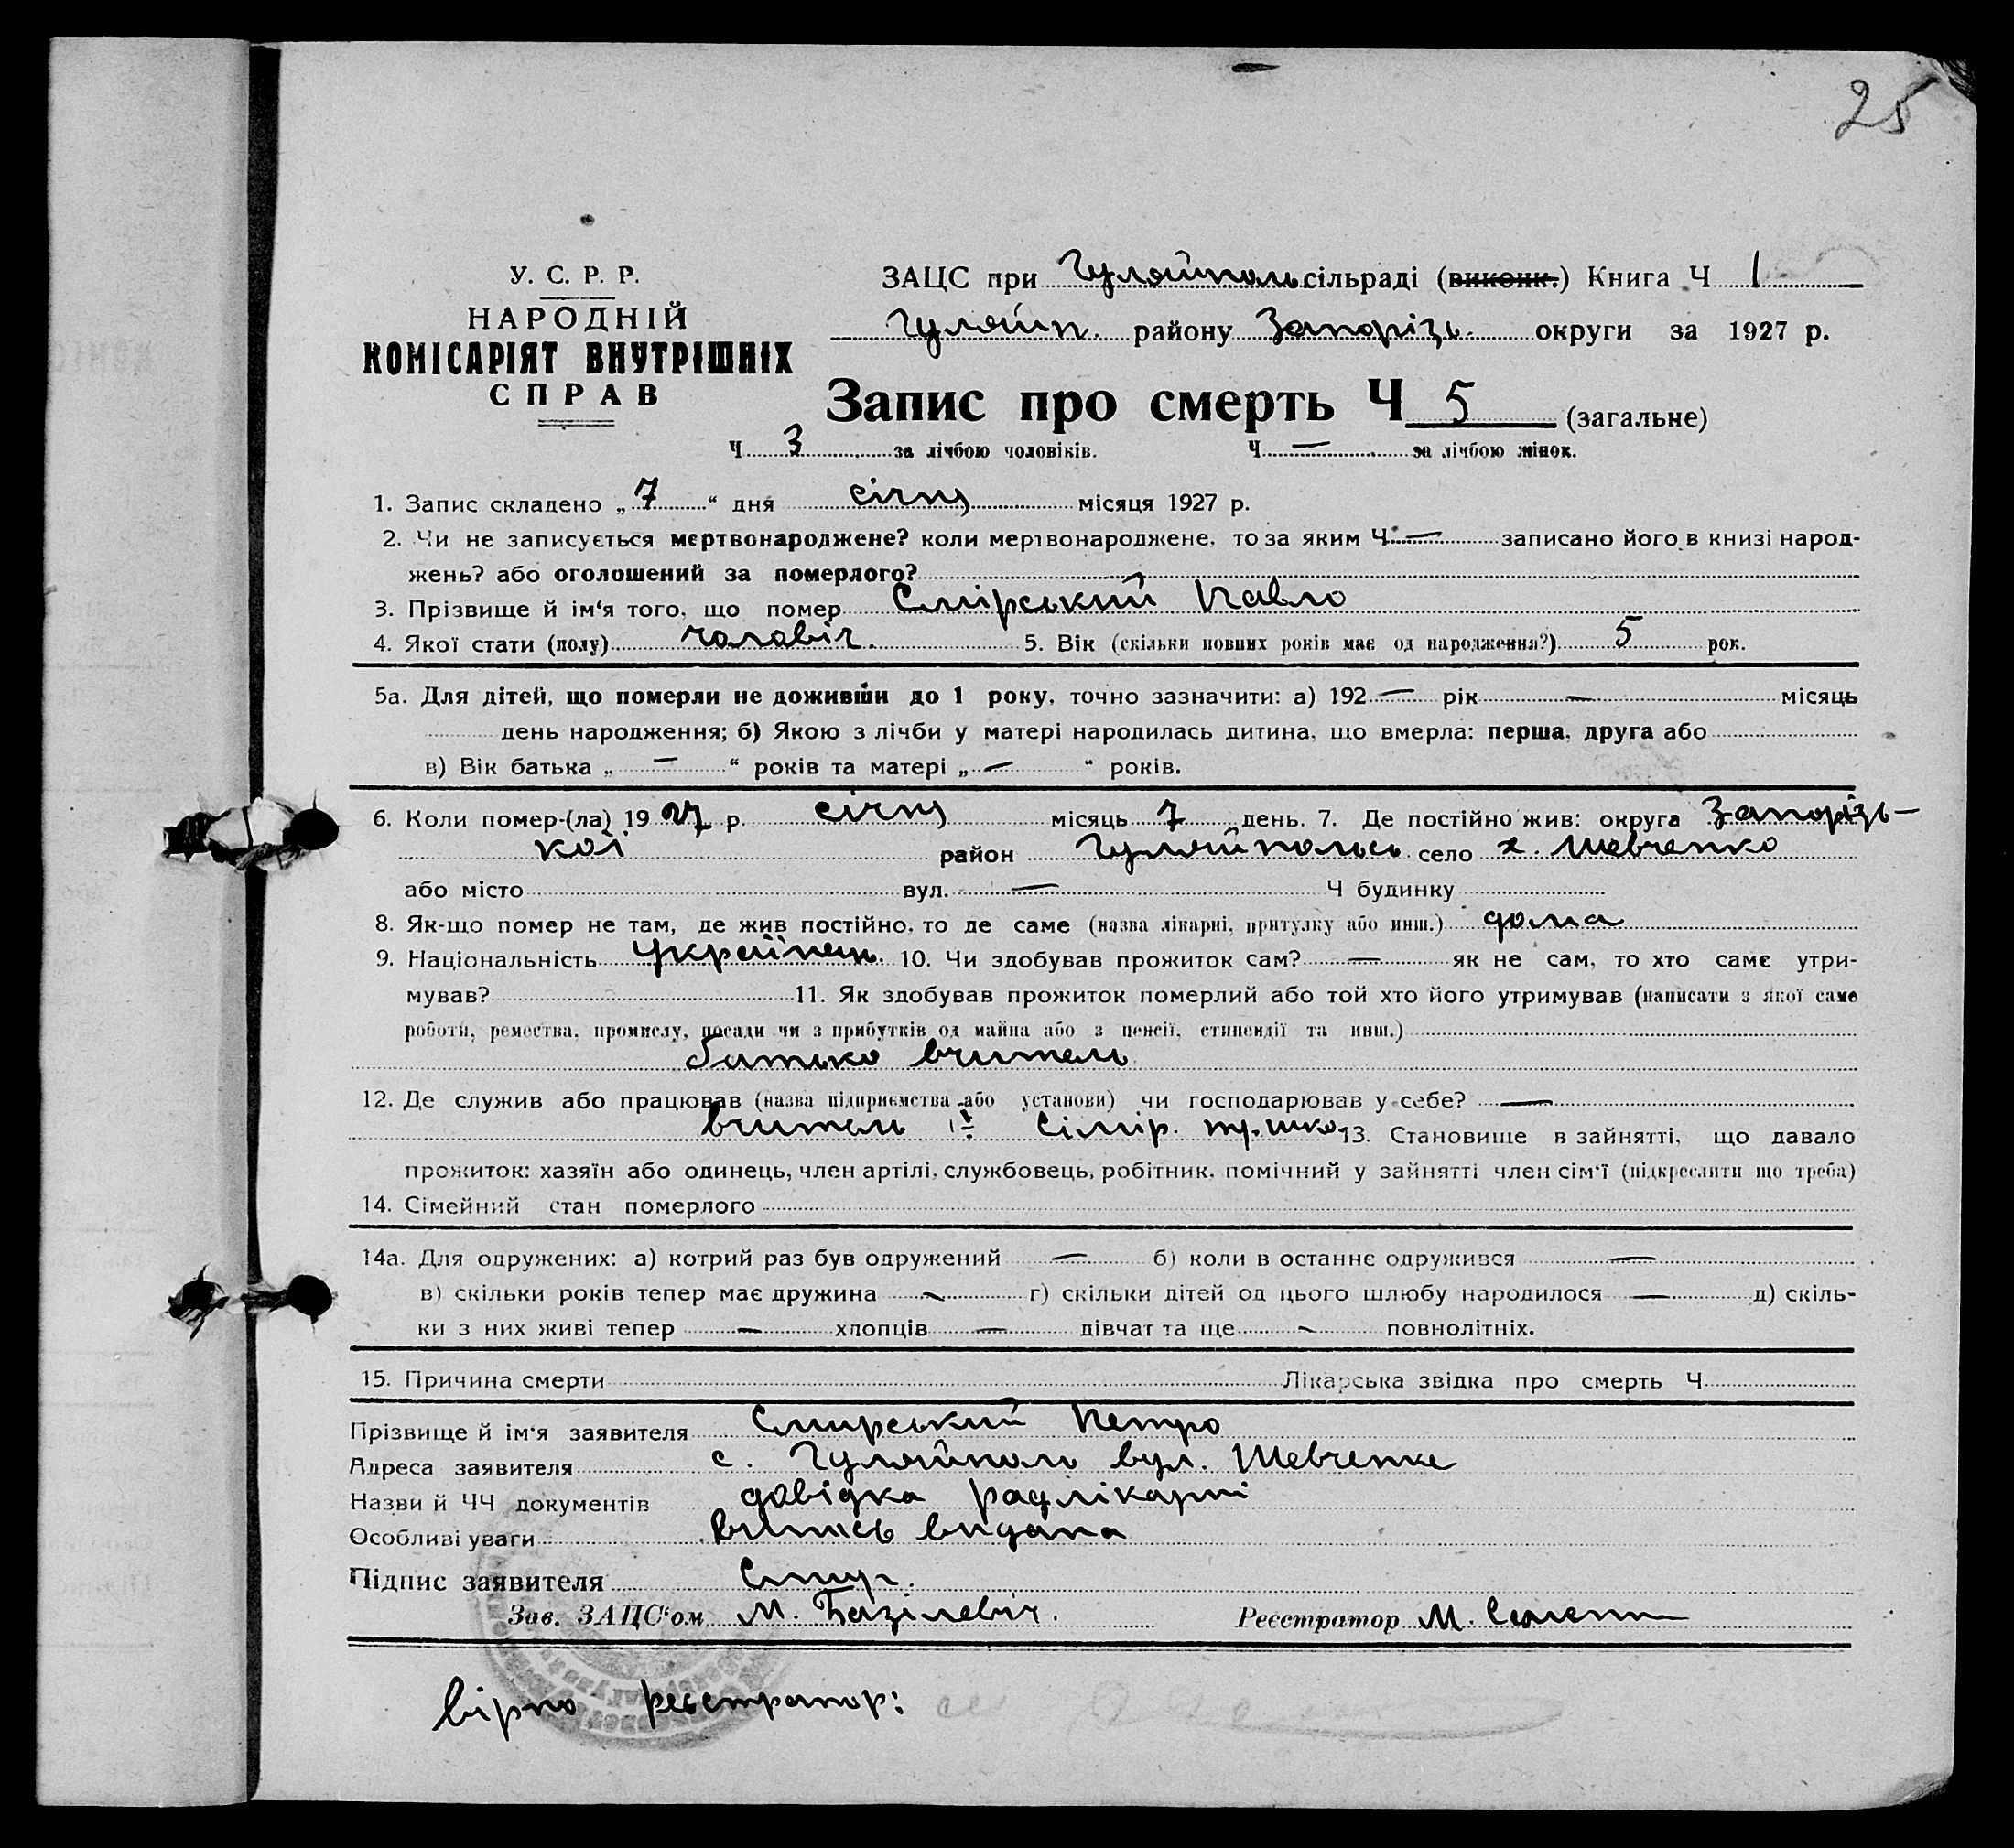 25
У. С. Р. Р.
НАРОДНІЙ
КОМІСАРІЯТ ВНУТРІШНІХ
СПРАВ
ЗАЦС при Гуляйполь сільраді (виконк.) Книга Ч 1
Гуляйп. району Запорізь. округи за 1927 р.
Запис про смерть Ч 5 (загальне)
Ч 3 за лічбою чоловіків. Ч — за лічбою жінок.
1. Запис складено „ 7 “ дня січня місяця 1927 р.
2. Чи не записується мертвонароджене? коли мертвонароджене, то за яким Ч — записано його в книзі народ-
жень? або оголошений за померлого?
3. Прізвище й ім‘я того, що помер Смірський Павло
4. Якої стати (полу) чоловіч. 5. Вік (скільки повних років має од народження?) 5 рок.
5а. Для дітей, що померли не доживши до 1 року, точно зазначити: а) 192 — рік — місяць
день народження; б) Якою з лічби у матері народилась дитина, що вмерла: перша, друга або
в) Вік батька „ — “ років та матері „ — “ років.
6. Коли помер-(ла) 19 27 р. січня місяць 7 день. 7. Де постійно жив: округа Запорізь-
кої район Гуляйпольсь село х. Шевченко
або місто вул. — Ч будинку
8. Як-що помер не там, де жив постійно, то де саме (назва лікарні, притулку або инш.) дома
9. Національність Українець. 10. Чи здобував прожиток сам? — як не сам, то хто саме утри-
мував? 11. Як здобував прожиток померлий або той хто його утримував (написати з якої саме
роботи, ремества, промислу, посади чи з прибутків од майна або з пенсії, стипендії та инш.)
батько вчитель
12. Де служив або працював (назва підприємства або установи) чи господарював у себе? —
вчитель шко. 13. Становище в зайнятті, що давало
прожиток: хазяїн або одинець, член артілі, службовець, робітник, помічний у зайнятті член сім‘ї (підкреслити що треба)
14. Сімейний стан померлого
14а. Для одружених: а) котрий раз був одружений — б) коли в останнє одружився —
в) скільки років тепер має дружина — г) скільки дітей од цього шлюбу народилося — д) скіль-
ки з них живі тепер — хлопців — дівчат та ще — повнолітніх.
15. Причина смерти Лікарська звідка про смерть Ч
Прізвище й ім‘я заявителя Смирський Петро
Адреса заявителя с. Гуляйполь вул. Шевченка
Назви й ЧЧ документів довідка райлікарні
Особливі уваги випись видана
Підпис заявителя Смир.
Зав. ЗАЦС‘ом М. Базілевіч. Реєстратор М.
вірно реєстратор: